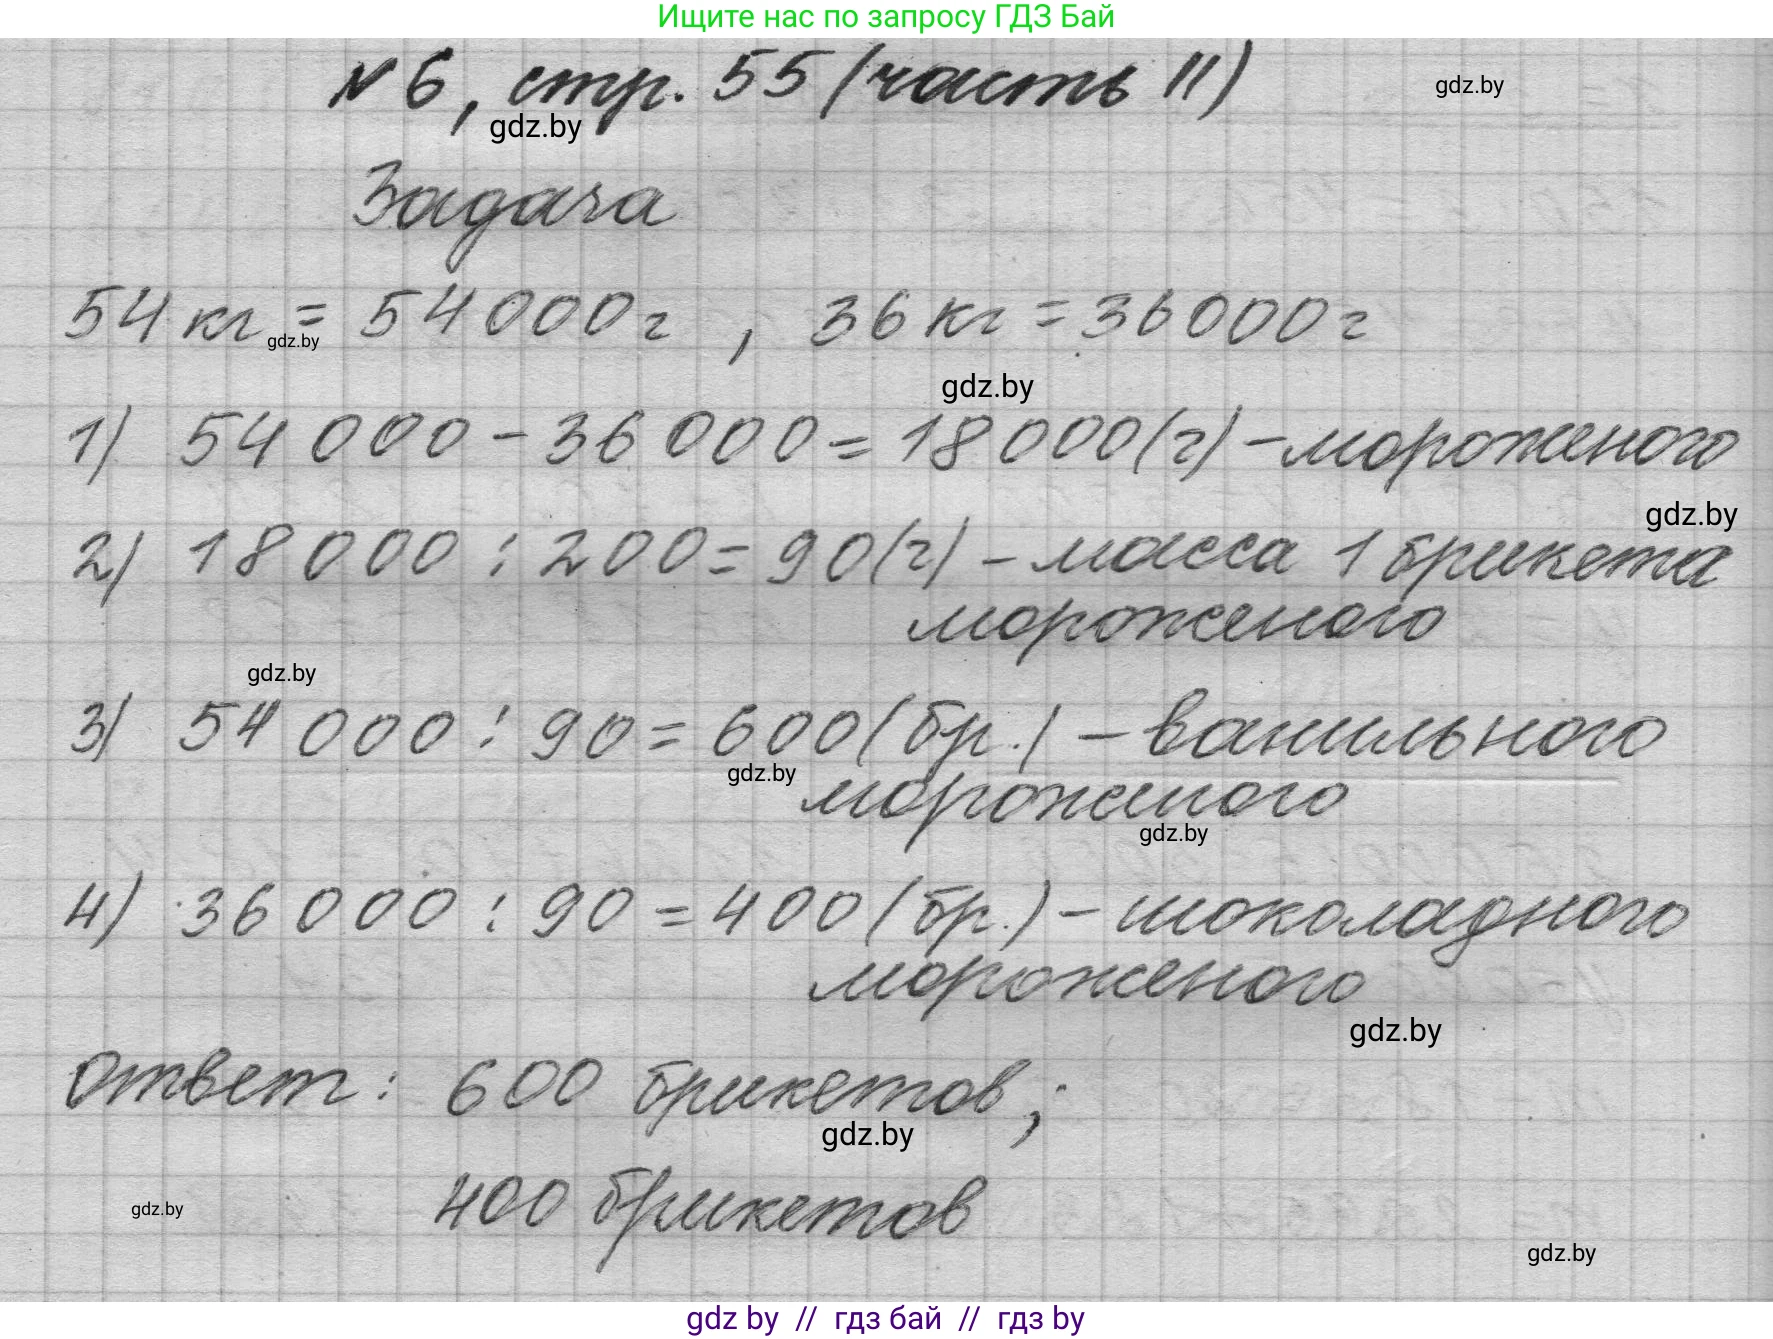 Ищите нас по запросу ГДЗ Бай
№ 6, стр. 55 (часть II)
gdz.by
gdz.by
Задача
54 кг = 54 000 г , 36 кг = 36 000 г
gdz.by
gdz.by
1) 54 000 - 36 000 = 18 000 (г) - мороженого
gdz.by
2) 18 000 : 200 = 90 (г) - масса 1 брикета
мороженого
gdz.by
3) 54 000 : 90 = 600 (бр.) - ванильного
gdz.by
мороженого
gdz.by
4) 36 000 : 90 = 400 (бр.) - шоколадного
мороженого
gdz.by
Ответ: 600 брикетов;
gdz.by
400 брикетов
gdz.by
gdz.by
gdz by // гдз бай // гдз by